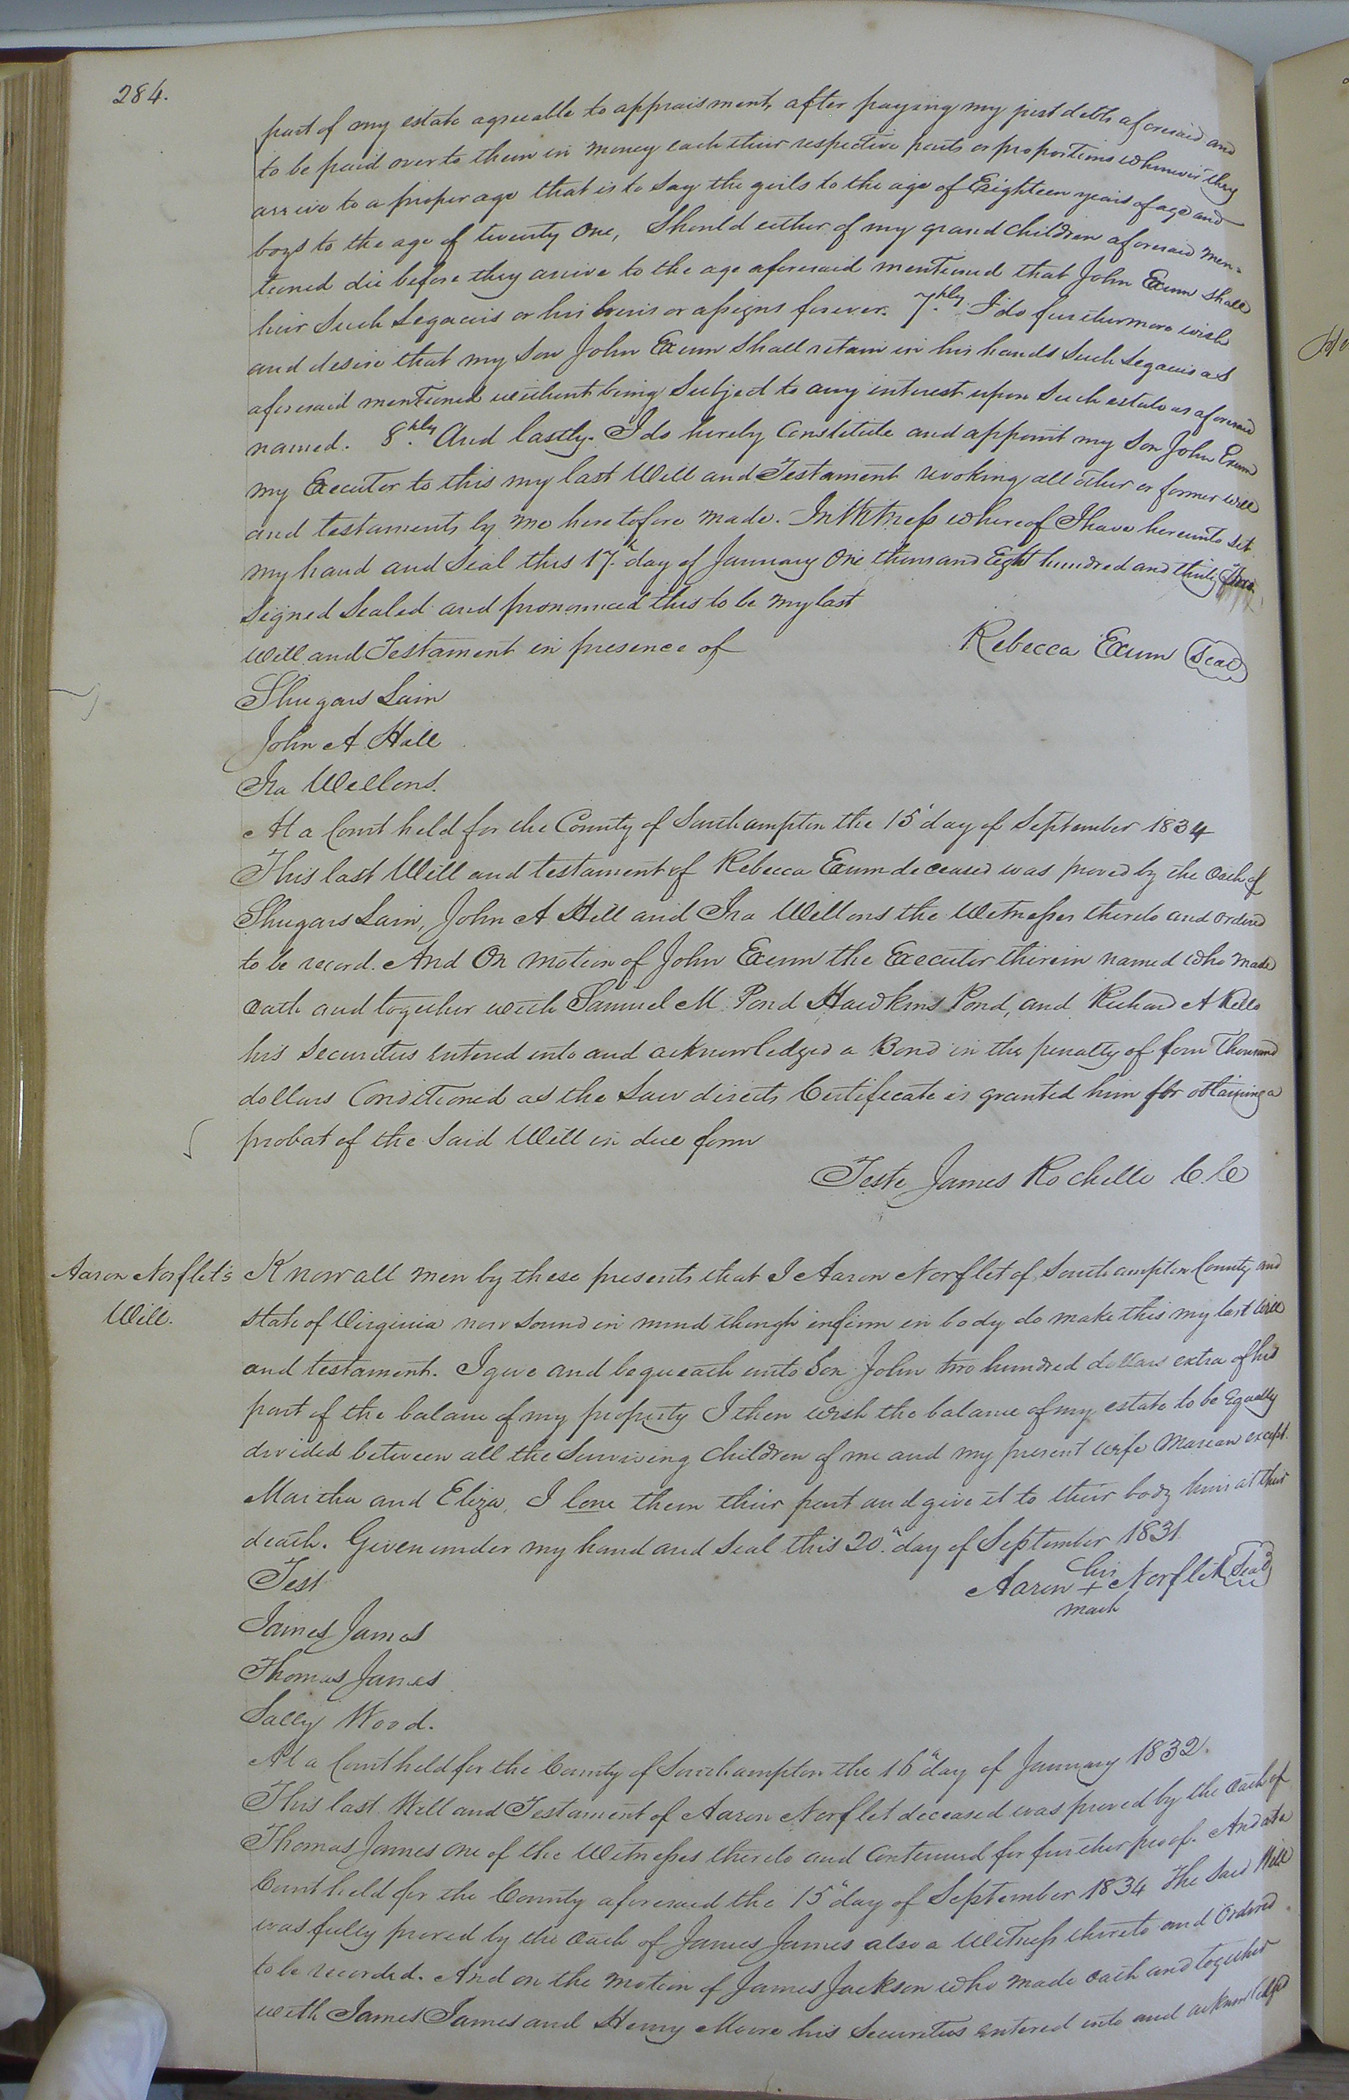 284.
part of my estate agreeable to appraisment, after paying my just debts aforesaid and
to be paid over to them in money each their respective parts or proportions whenever they
arrive to a proper age that is to say the girls to the age of Eighteen years of age and
boys to the age of twenty One, Should either of my grand Children aforesaid men-
tioned die before they arive to the age aforesaid mentioned that John Exum shall
heir Such Legacies or his heirs or assigns forever. 7.thly I do furthermore wish
and desire that my Son John Exum Shall retain in his hands Such Legacies as
aforesaid mentioned without being Subject to any interest upon Such estate as aforesaid
named. 8.thly And lastly. I do hereby Constitute and appoint my Son John Exum
my Executor to this my last Will and Testament revoking all other or former will
and testaments by me heretofore made. In Witness whereof I have hereunto set
my hand and Seal this 17.th day of January One thousand Eight hundred and thirty
Signed Sealed and pronounced this to be my last
Will and Testament in presence of Rebecca Exum Seal
Shugars Lain
John A Hall
Ira Wellons.
At a Court held for the County of Southampton the 15th day of September 1834
This last Will and testament of Rebecca Exum deceased was proved by the Oath of
Shugars Lain, John A Hill and Ira Wellons the Witnesses thereto and Ordered
to be record. And On motion of John Exum the Executor therein named who made
Oath and together with Samuel M. Pond Hawkins Pond, and Richard A Kello
his Securities entered into and acknowledged a Bond in the penalty of four Thousand
dollars Conditioned as the Law directs Certificate is granted him for obtaining a
probat of the Said Will in due form
Teste James Rochelle C.C
Aaron Norflet's
Will.
Know all men by these presents that I Aaron Norflet of Southampton County and
State of Virginia now Sound in mind though infirm in body do make this my last Will
and testament. I give and bequeath unto Son John two hundred dollars extra of his
part of the balance of my property I then wish the balance of my estate to be Equally
divided between all the Surviving Children of me and my present wife Marian except
Martha and Eliza, I lone them their part and give it to their body heirs at their
death. Given under my hand and Seal this 20.th day of September 1831.
Test
Aaron his + mark Norflet Seal
James James
Thomas James
Sally Wood.
At a Court held for the County of Southampton the 16th day of January 1832.
This last Will and Testament of Aaron Norflet deceased was proved by the Oath of
Thomas James One of the Witnesses thereto and Continued for further proof. And at a
Court held for the County aforesaid the 15th day of September 1834 The Said Will
was fully proved by the Oath of James James also a Witness thereto and Ordered
to be recorded. And on the motion of James Jackson who made Oath and together
with James James and Henry Moore his Securities entered into and acknowledged